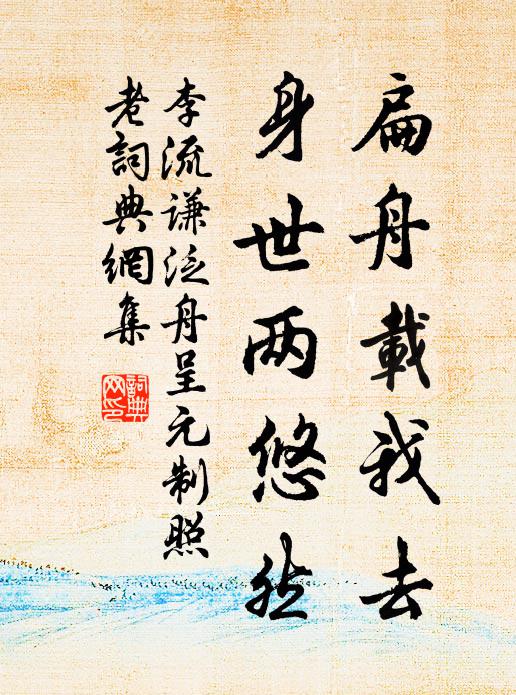 扁舟載我去
身世两悠然
李流谦泛舟呈元制照
老詞典網集
詞典
网印